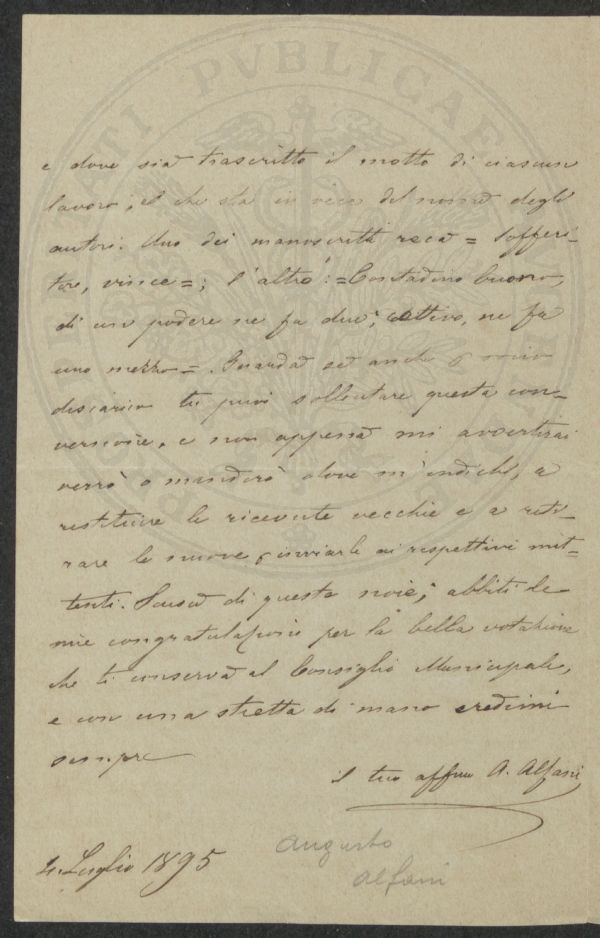 e dove sia trascritto il motto di ciascun
lavoro; il che sta in vece del nome degli
autori. Uno dei manoscritti reca = Sofferi-
tore, vince =; l'altro: = Contadino buono,
di un podere ne fa due; cattivo, ne fa
uno mezzo =. Guarda se anche a mio
discarico tu puoi sollecitare questa con-
versione, e non appena mi avvertirai
verrò o manderò dove m'indichi, a
restituire le ricevute vecchie e a riti-
rare le nuove e inviarle ai rispettivi mit-
tenti. Scusa di queste noie; abbiti le
mie congratulazioni per la bella votazione
che ti conserva al Consiglio Municipale,
e con una stretta di mano credimi
sempre
il tuo affmo A. Alfani
4. Luglio 1895
Augusto
Alfani
PVBLICAE